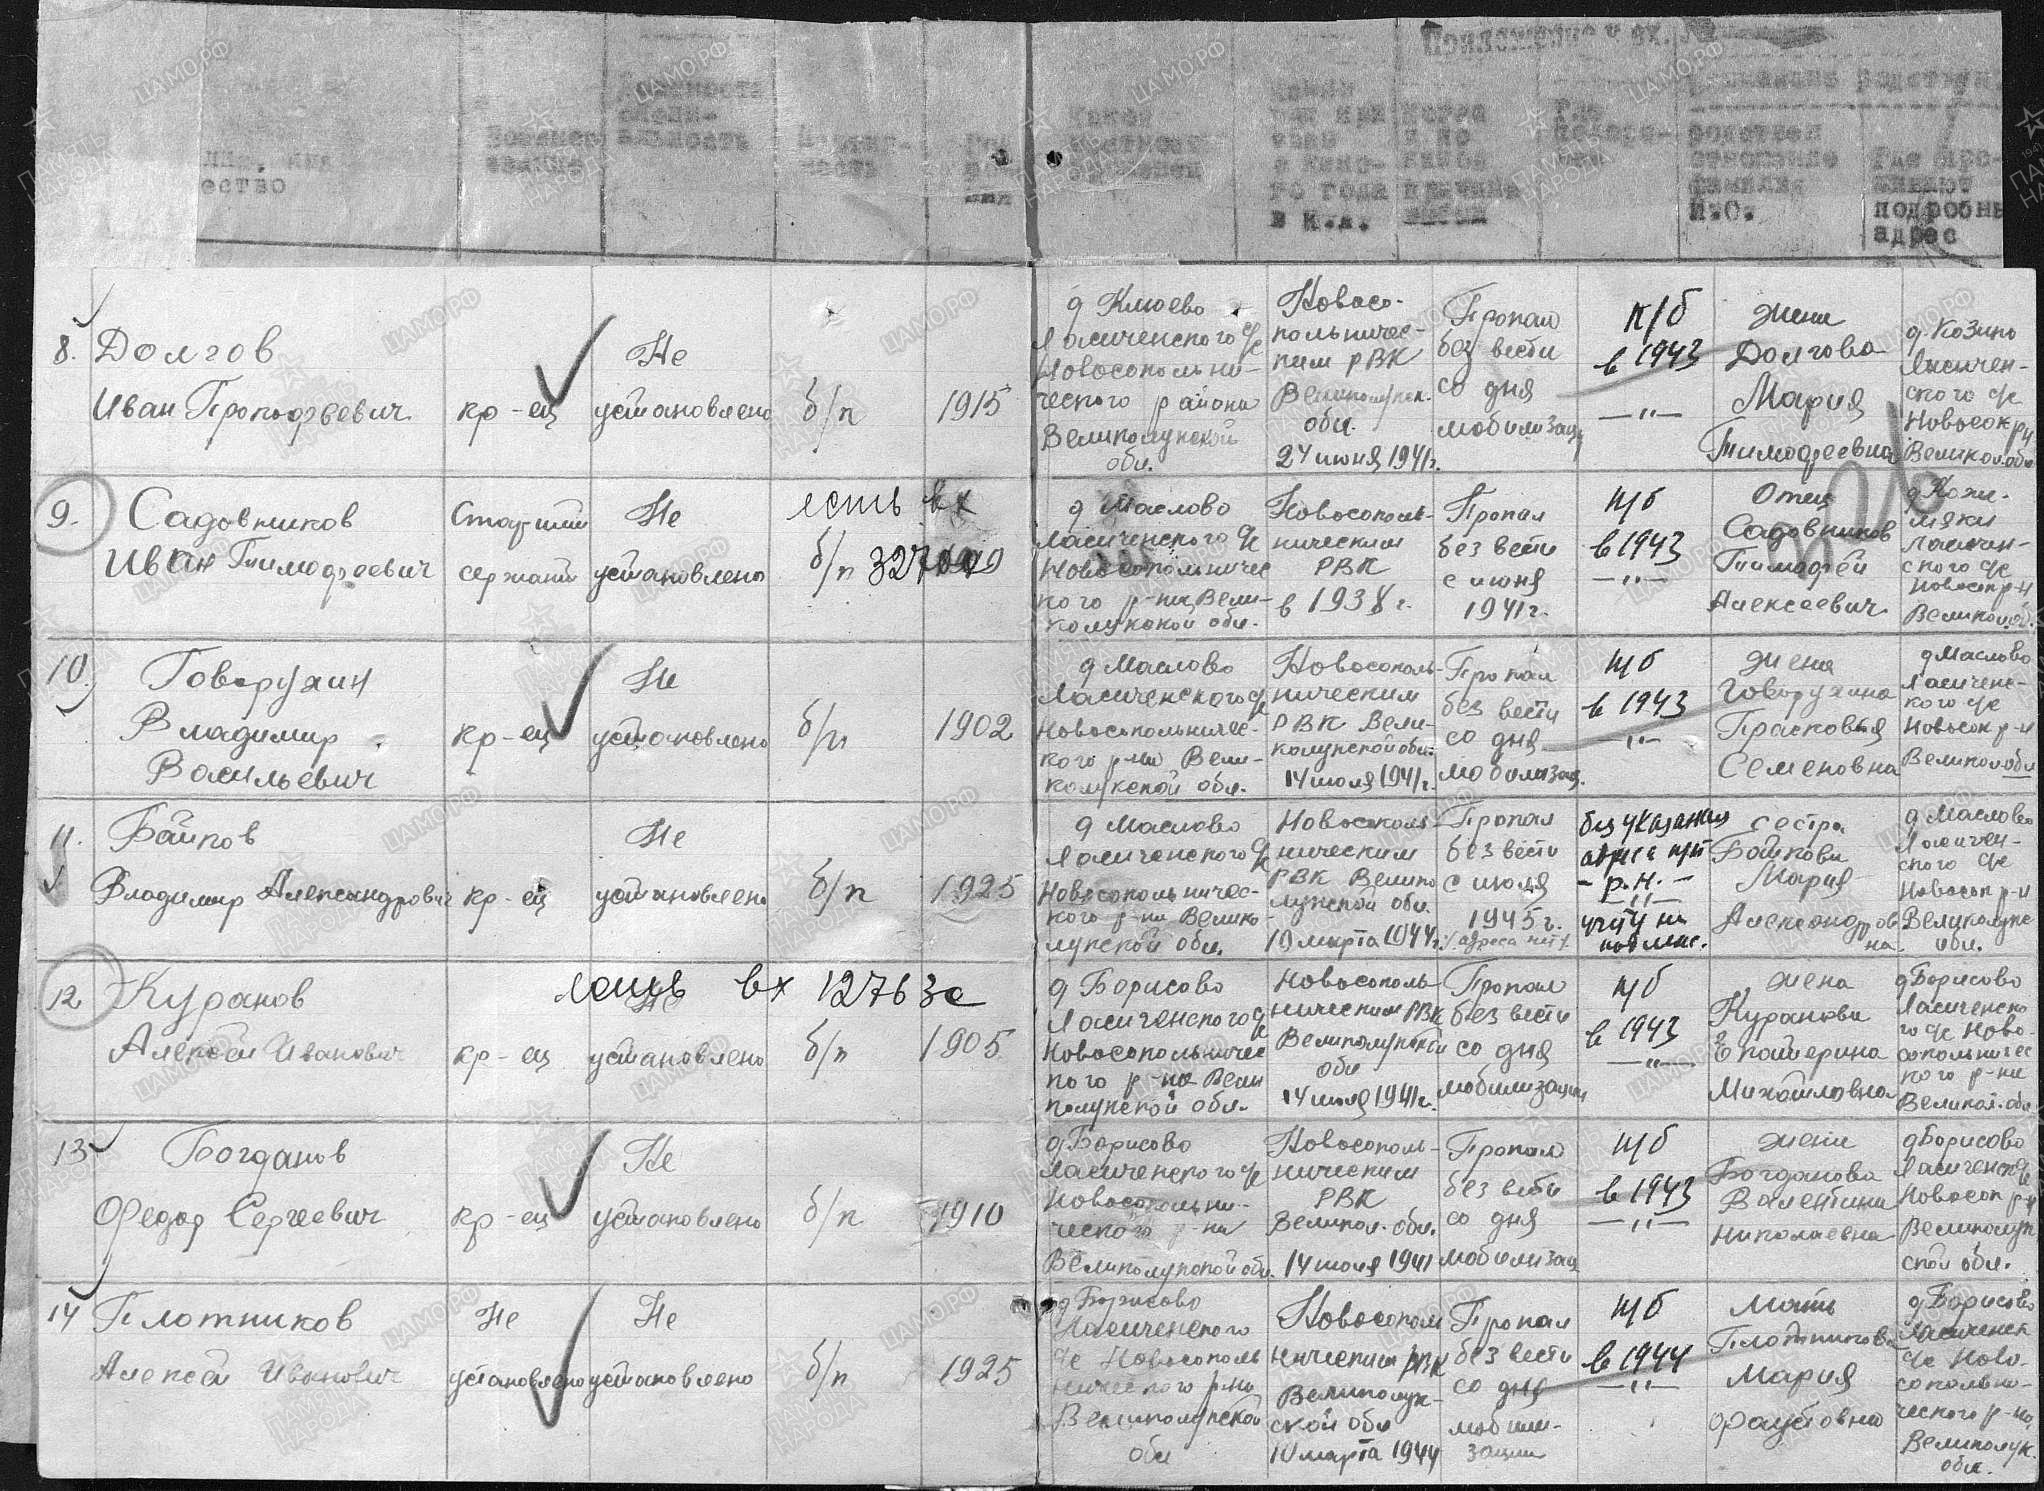 Приложение к вх. №
ество
Воинское
звание
Должность
специ-
альность
Партий-
ность
Кем и
в К.А.
Когда
и по
какой
причине
выбыл
Где
родствен
отношение
фамилия
И.О.
Где про-
живают
подробный
адрес
8. Долгов
Иван Прокофьевич
кр-ец
Не
установлено
б/п
1915
д Клюево
Ласиченского с/с
Новосокольни-
ческого района
Великолукской
обл.
Новосо-
кольничес-
ким РВК
Великолукск.
обл.
24 июня 1941г.
Пропал
без вести
со дня
мобилизац
п/б
в 1943
—"—
жена
Долгова
Мария
Тимофеевна
д. Козино
Ласичен-
ского с/с
Новосок рн
Великол.обл
9. Садовников
Иван Тимофеевич
Старший
сержант
Не
установлено
есть вх
б/п
д Маслово
Ласиченского с/с
Новосокольничес
кого р-на Вели-
колукской обл.
Новосоколь-
ническим
РВК
в 1938 г.
Пропал
без вести
с июня
1941г.
п/б
в 1943
—"—
Отец
Садовников
Тимофей
Алексеевич
Великол.об.
10. Говорухин
Владимир
Васильевич
кр-ец
Не
установлено
б/п
1902
д Маслово
Ласиченского с/с
Новосокольничес-
кого р-на Вели-
колукской обл.
Новосоколь-
ническим
РВК Вели-
колукской обл.
14 июля 1941г.
Пропал
без вести
со дня
мобилизац.
п/б
в 1943
—"—
жена
Говорухина
Прасковья
Семеновна
д Маслово
Ласиченс-
кого с/с
Новосок р-н
Великол обл
11. Байков
Владимир Александрович
кр-ец
Не
установлено
б/п
1925
д Маслово
Ласиченского с/с
Новосокольничес-
кого р-на Велико-
лукской обл.
Новосоколь-
ническим
РВК Велико
лукской обл.
10 марта 1944г.
Пропал
без вести
с июля
1945г.
адреса нет
без указания
адреса п/п
- р.н. -
сестра
Байкова
Мария
Александров
на
д Маслово
Ласичен-
ского с/с
Новосок р-н
Великолукс
обл.
12 Куранов
Алексей Иванович
кр-ец
есть вх 12763с
Не
установлено
б/п
1905
д Борисово
Ласиченского с/с
Новосокольничес
кого р-на Вели
колукской обл.
Новосоколь-
ническим РВК
Великолукской
обл
14 июля 1941г.
Пропал
без вести
со дня
мобилизации
п/б
в 1943
—"—
жена
Куранова
Екатерина
Михайловна
д Борисово
Ласиченско
го с/с Ново-
сокольничес
кого р-на
Великол.обл
13 Богданов
Федор Сергеевич
кр-ец
Не
установлено
б/п
1910
д.Борисово
Ласиченского с/с
Новосокольни-
ческого р-на
Великолукской обл.
Новосоколь-
ническим
РВК
Великол. обл.
14 июля 1941
Пропал
без вести
со дня
мобилизац
п/б
в 1943
—"—
жена
Богданова
Валентина
Николаевна
д Борисово
Ласиченск с/с
Новосок р-н
Великолук
ской обл.
14 Плотников
Алексей Иванович
Не
установлено
Не
установлено
б/п
1925
д Борисово
Ласиченского
с/с Новосоколь
нического р-на
Великолукской
обл
Новосокол
ническим РВК
Великолук-
ской обл
10 марта 1944
Пропал
без вести
со дня
мобили-
зации
п/б
в 1944
—"—
Мать
Плотникова
Мария
Фаустовна
д Борисово
Ласиченск
с/с Ново-
сокольни-
ческого р-на
Великолук.
обл.